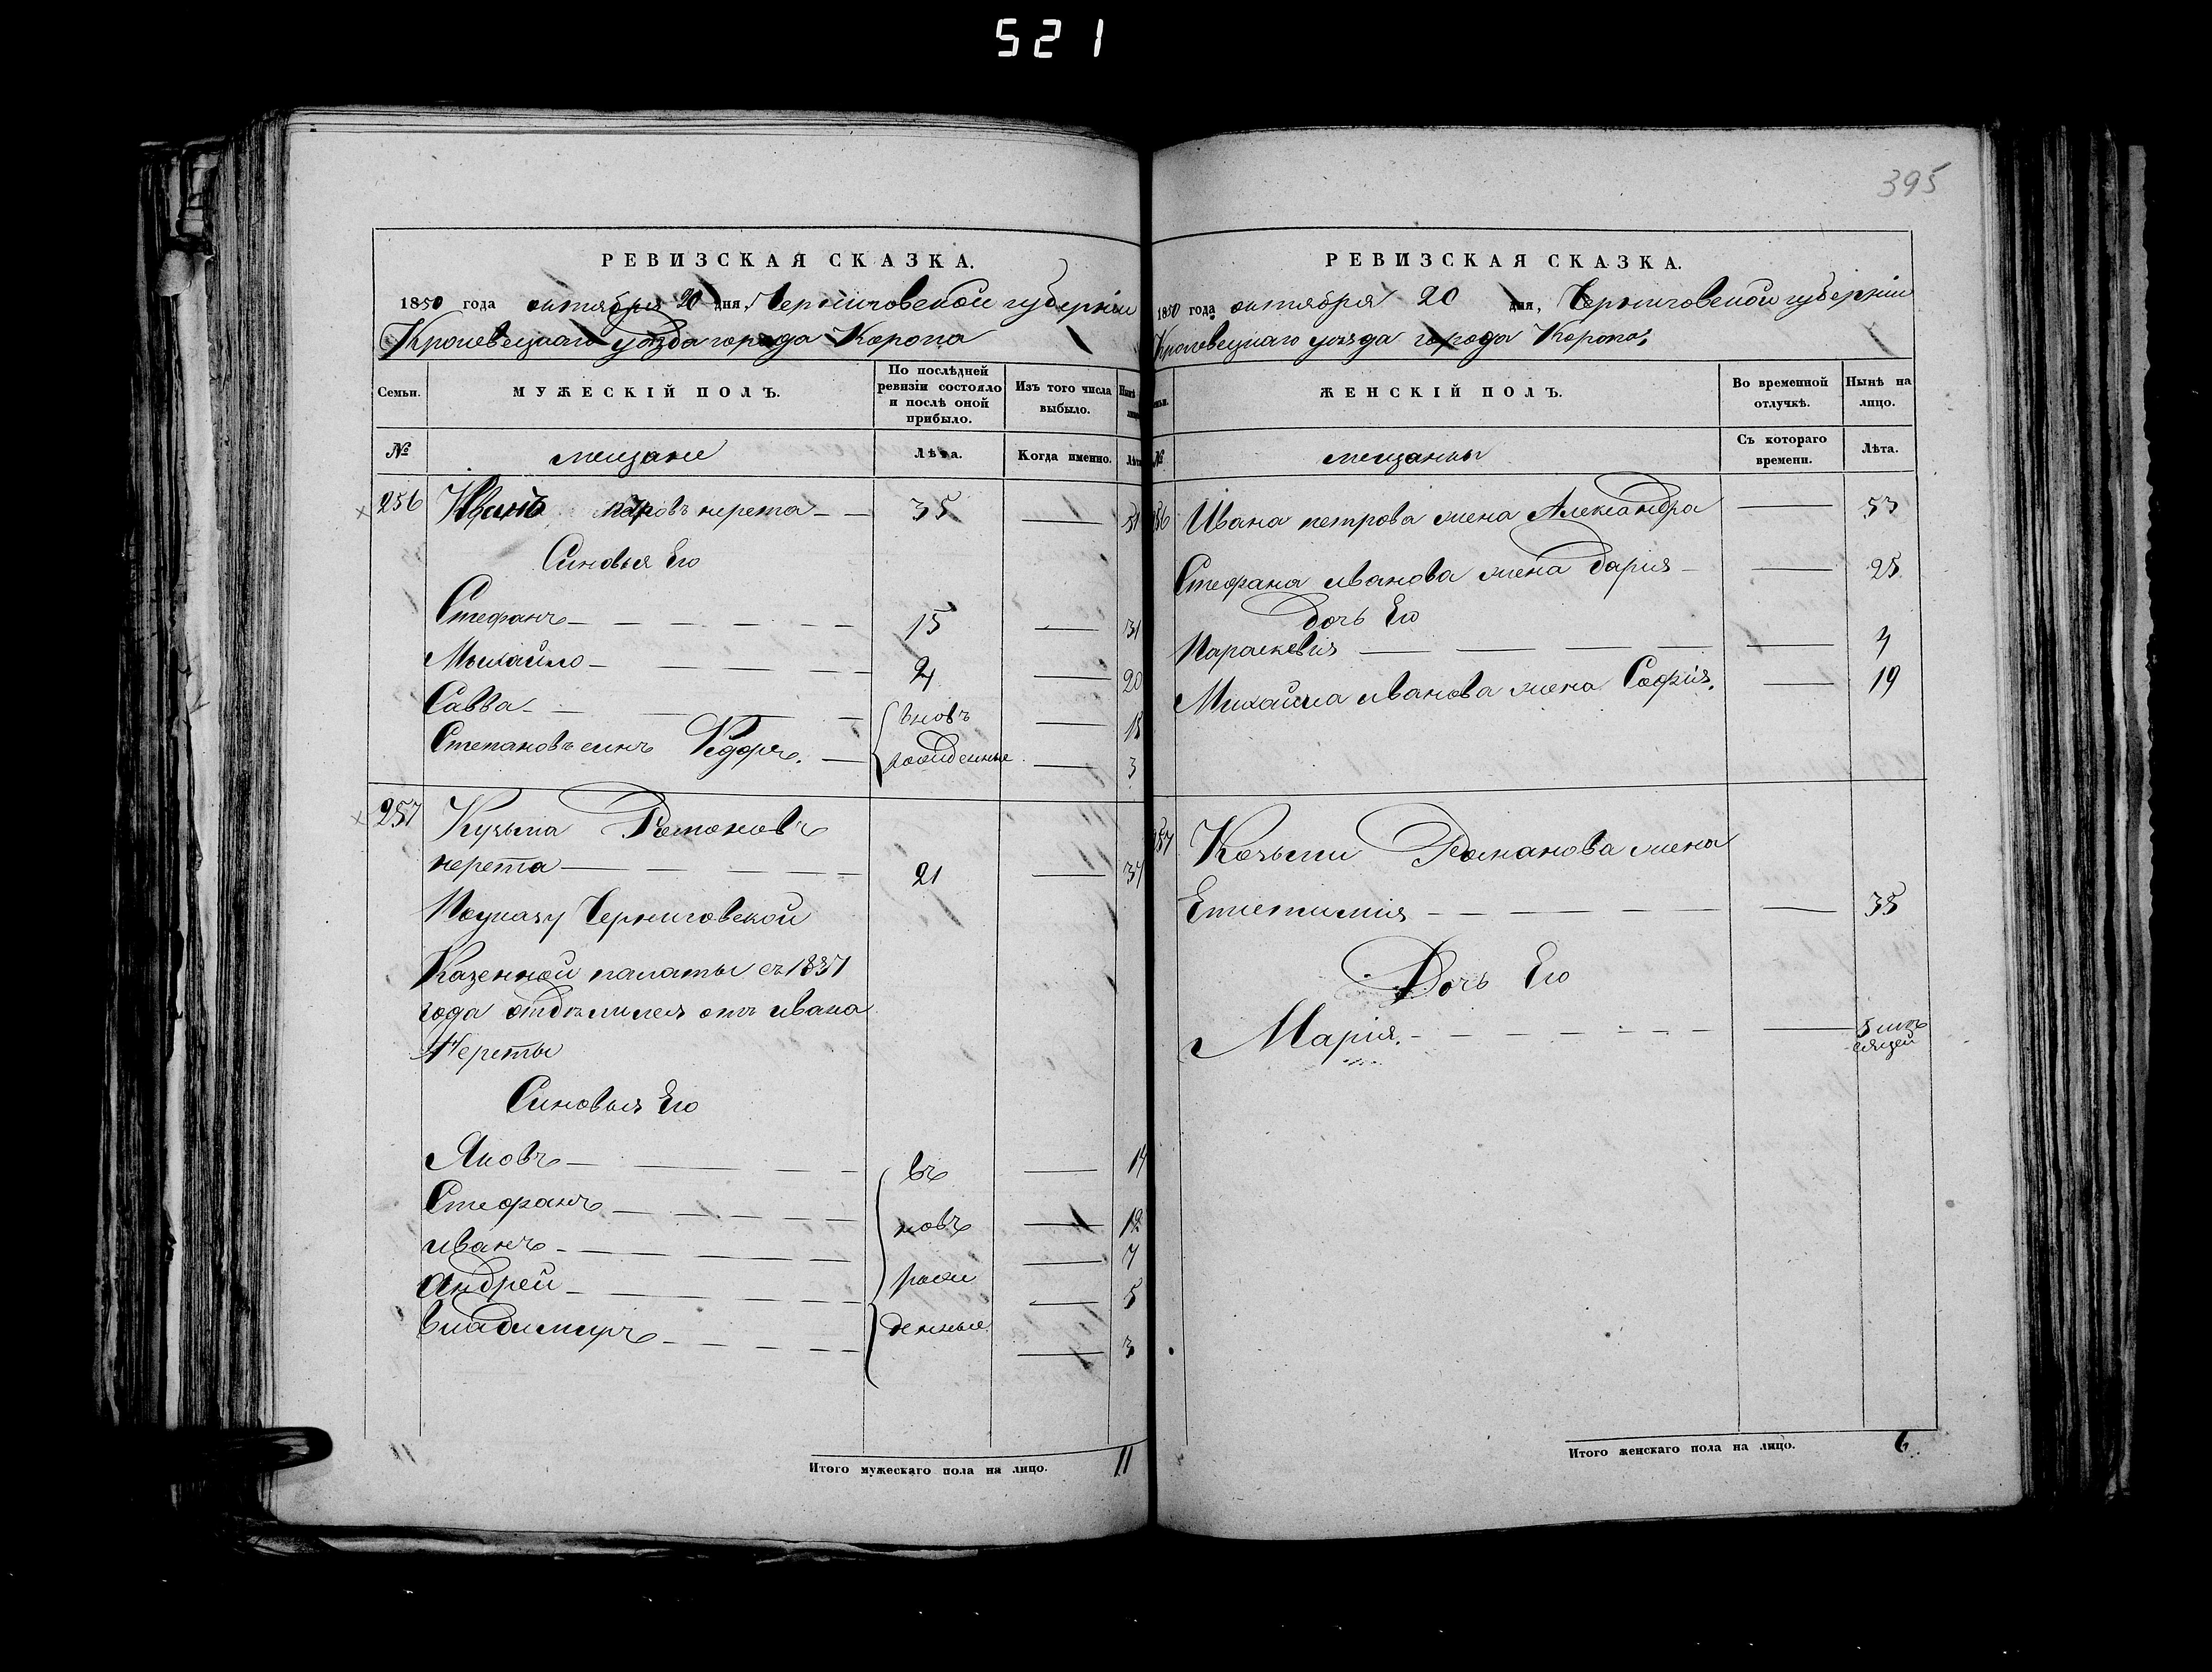 521
395
РЕВИЗСКАЯ СКАЗКА.
1850 года октября 20 дня, Черниговской губернiи
Кролевецкаго уѣзда города Коропа
Семьи.
МУЖЕСКIЙ ПОЛЪ.
По послѣдней ревизiи состояло и послѣ оной прибыло.
Изъ того числа выбыло.
Нынѣ
№
мещане
Лѣта.
Когда именно.
Лѣта
256 Иванъ нерета 35 51
Синовья Его
Стефанъ 15 31
Михайло 4 20
Савва вновъ 15
Степановъ синъ Федоръ рожденные 3
257 Кузьма Романовъ
нерета 21 37
Поуказу Черниговской
Казенной палаты съ 1837
года отдѣлился отъ ивана
Нереты
Синовья Его
Яковъ въ 14
Стефанъ новъ 12
иванъ 7
андрей рож 5
владимиръ денные 3
Итого мужескаго пола на лицо. 11
РЕВИЗСКАЯ СКАЗКА.
1850 года октября 20 дня, Черниговской губернiи
Кролевецкаго уѣзда города Коропа,
ЖЕНСКIЙ ПОЛЪ.
Во временной отлучкѣ.
Нынѣ на лицо.
№
мещанки
Съ котораго времени.
Лѣта.
56 Ивана петрова жена Александра 53
Стефана иванова жена дария 25
дочь Его
Параскевiя 4
Михайла иванова жена Софiя, 19
57 Козьми Романова жена
35
Дочь Его
Марiя. 5 мѣсяцей
Итого женскаго пола на лицо. 6